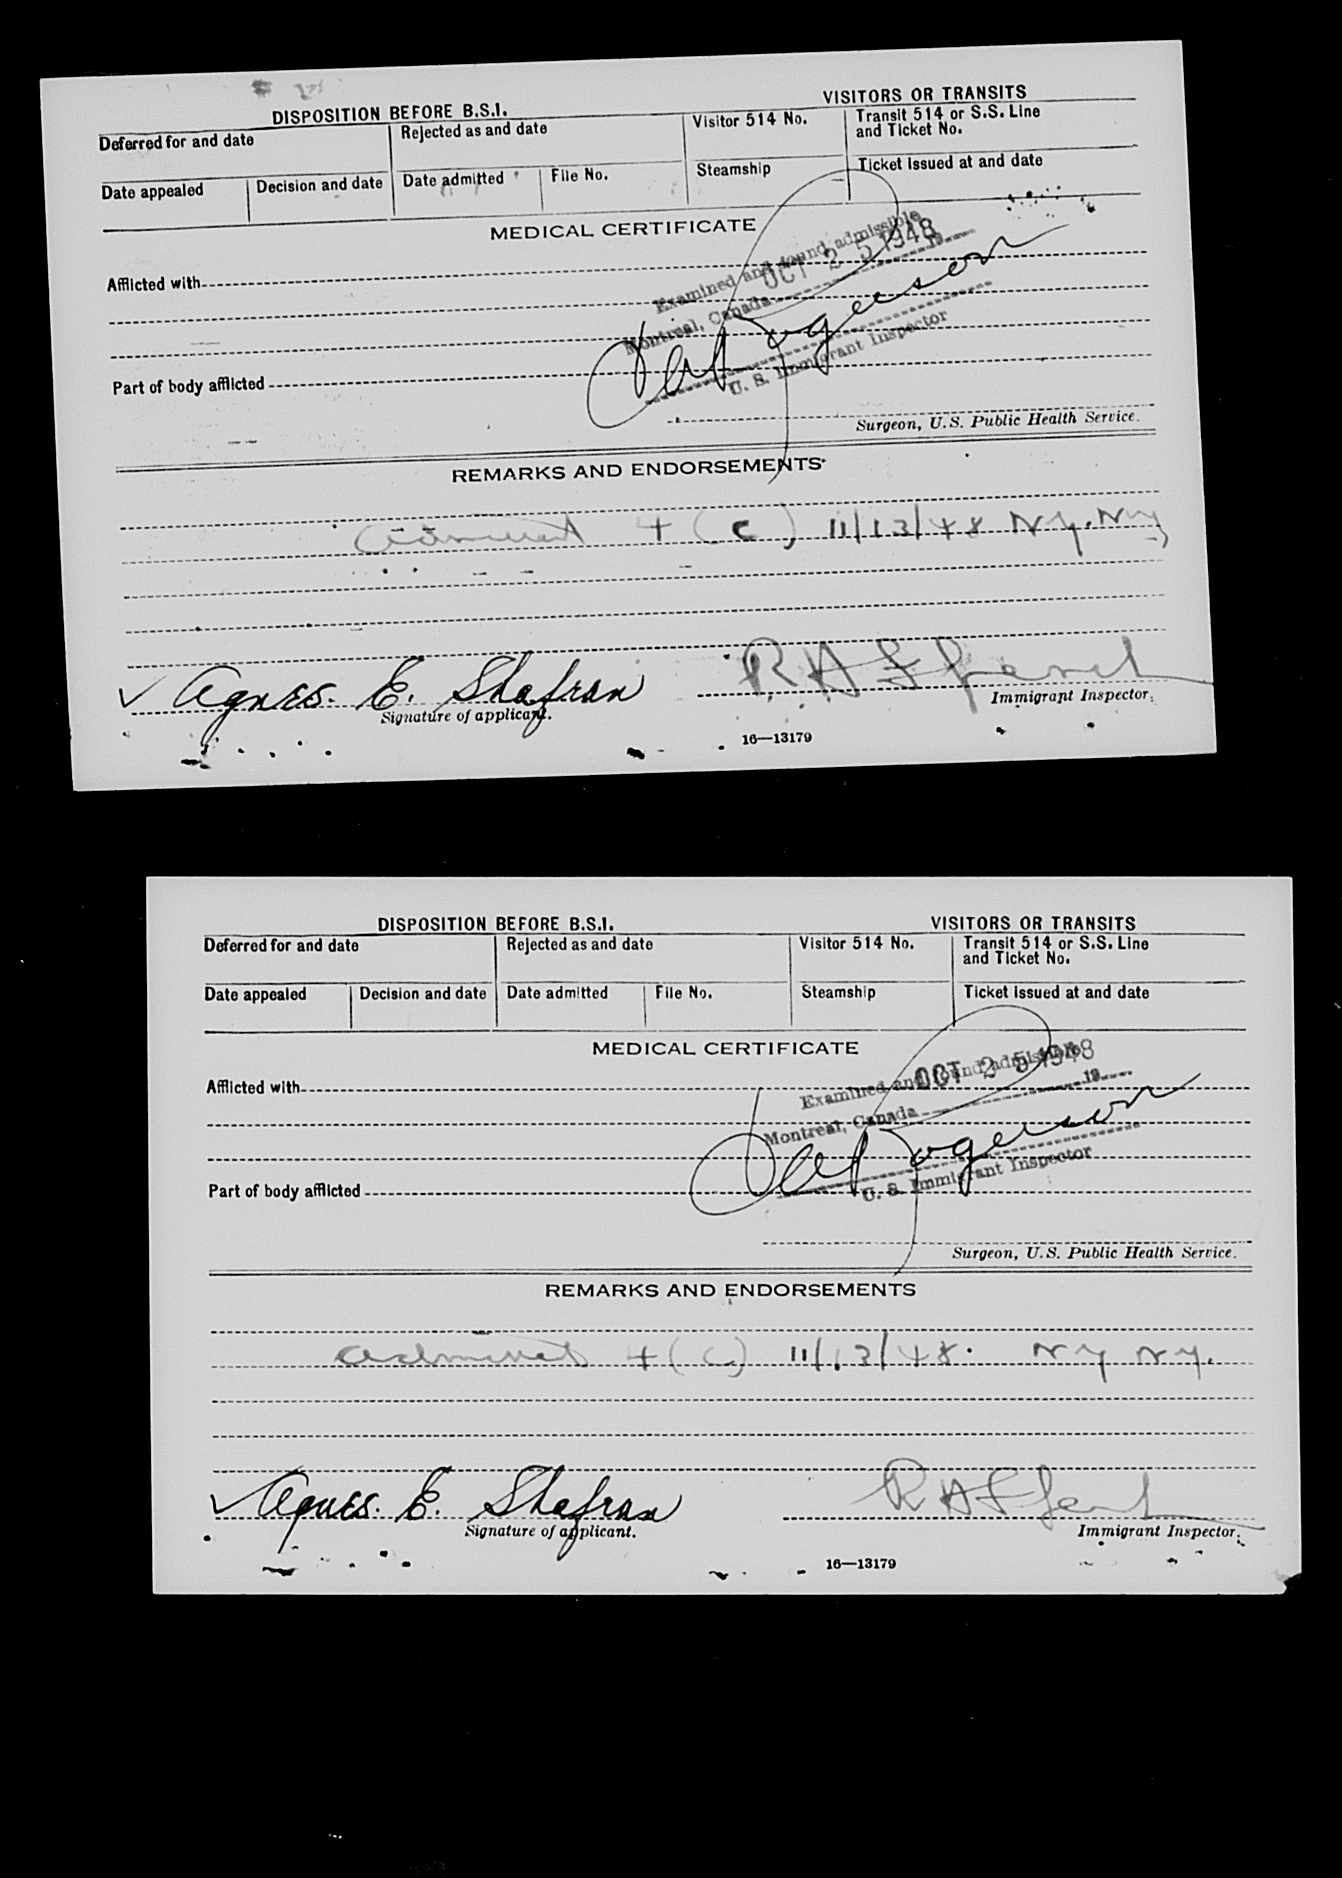 DISPOSITION BEFORE B.S.I.
VISITORS OR TRANSITS
Deferred for and date
Rejected as and date
Visitor 514 No.
Transit 514 or S.S. Line
and Ticket No.
Date appealed
Decision and date
Date admitted
File No.
Steamship
Ticket issued at and date
MEDICAL CERTIFICATE
Examined and found admissible
OCT 25 1948
19
Afflicted with
Montreal, Canada
Rogerson
U. S. Immigrant Inspector
Part of body afflicted
Surgeon, U.S. Public Health Service.
REMARKS AND ENDORSEMENTS
admitted 4 (c) 11/13/48 N.Y. N.Y.
Agnes. E. Shafran
Signature of applicant.
Immigrant Inspector.
16—13179
DISPOSITION BEFORE B.S.I.
VISITORS OR TRANSITS
Deferred for and date
Rejected as and date
Visitor 514 No.
Transit 514 or S.S. Line
and Ticket No.
Date appealed
Decision and date
Date admitted
File No.
Steamship
Ticket issued at and date
MEDICAL CERTIFICATE
OCT 25 1948
Examined and found admissible
19
Afflicted with
Montreal, Canada
Rogerson
U. S. Immigrant Inspector
Part of body afflicted
Surgeon, U.S. Public Health Service.
REMARKS AND ENDORSEMENTS
admitted 4 (c) 11/13/48. N Y N Y.
Agnes. E. Shafran
Signature of applicant.
Immigrant Inspector.
16—13179